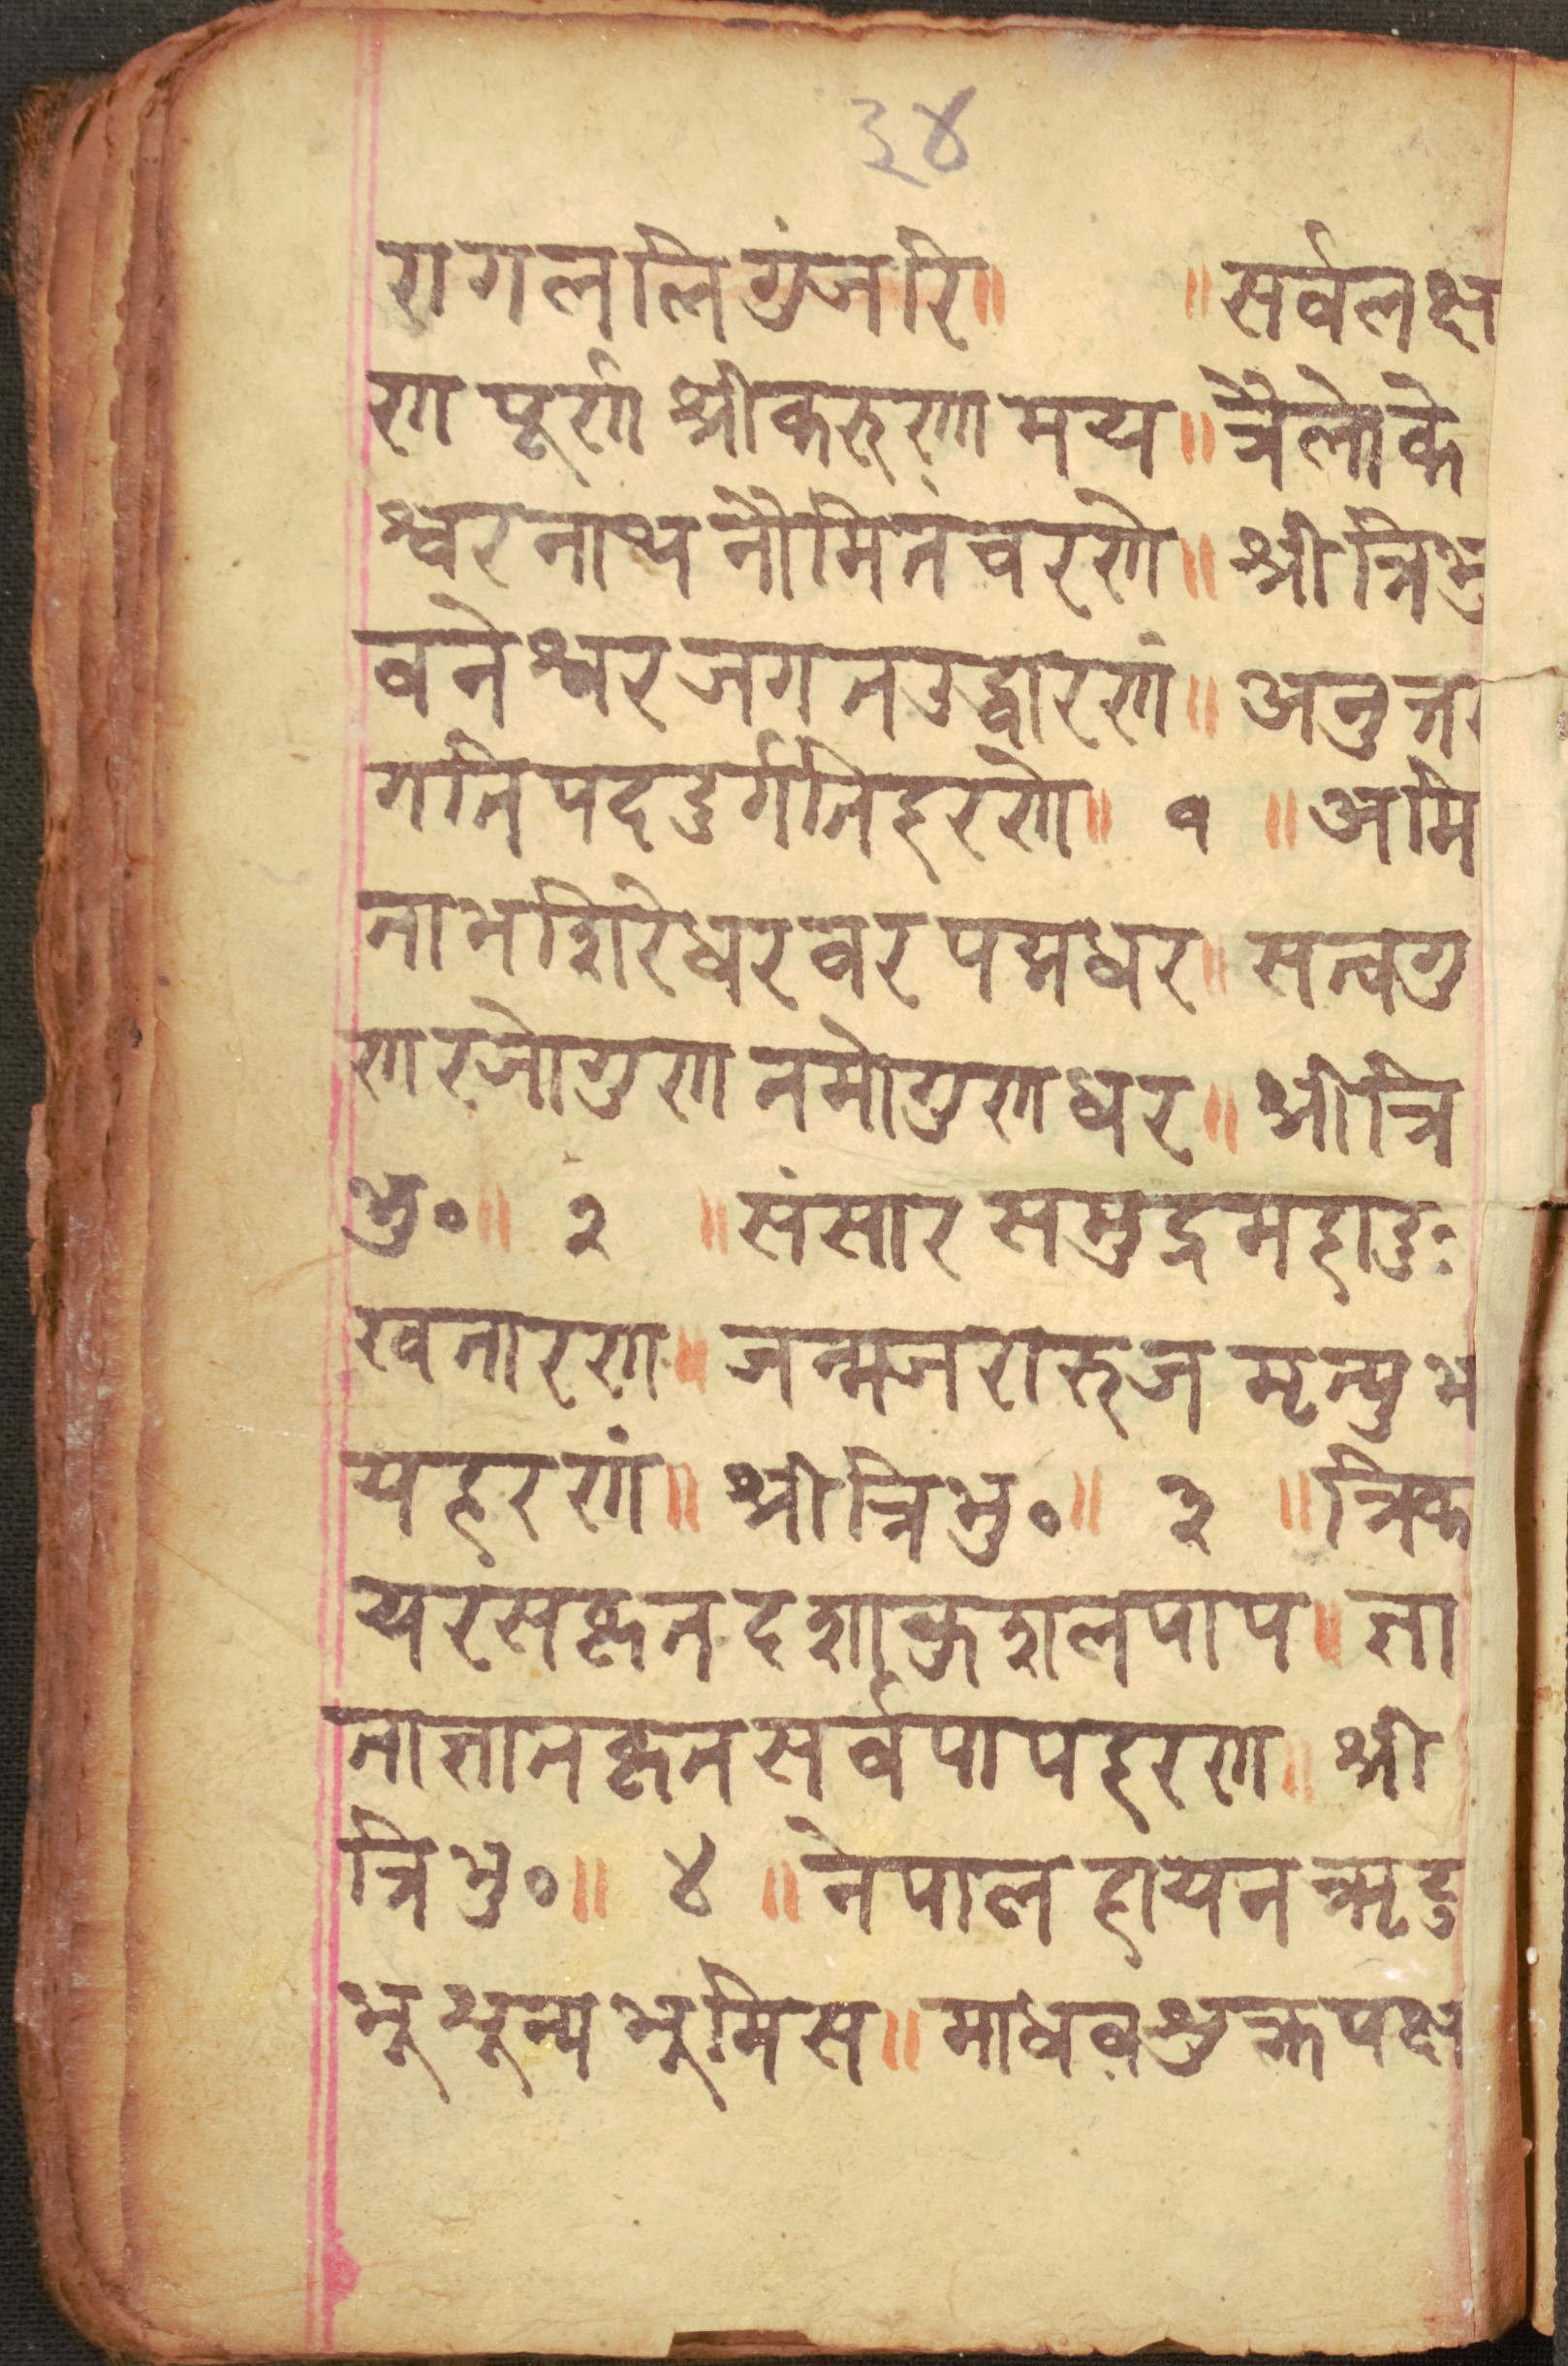 ३४
रागललिगुंजरि॥ ॥सर्वलक्ष
ण पूर्ण श्रीकरुणामय॥त्रैलोके
श्वरनाथनौमितंचरणे॥श्रीत्रिभु
वनेश्वरजगतउद्धारणं॥अनुत्तर
गतिपददुर्गतिहरणे॥ १ ॥अमि
ताभशिरेधरवरपद्मधर॥सत्वगु
णरजोगुणतमोगुणधर॥श्रीत्रि
भु०॥ २ ॥संसारसमुद्रमहादुः
खतारण॥जन्मजरारुजमृत्युभ
यहरणं॥श्रीत्रिभु०॥ ३ ॥त्रिका
यरंसकृतदशाकुशलपाप॥ज्ञा
ताज्ञातकृतसर्वपापहरण॥श्री
त्रिभु०॥ ४ ॥नेपालहायनऋदु
भुशून्यभूमिस॥माधवशुक्लपक्ष